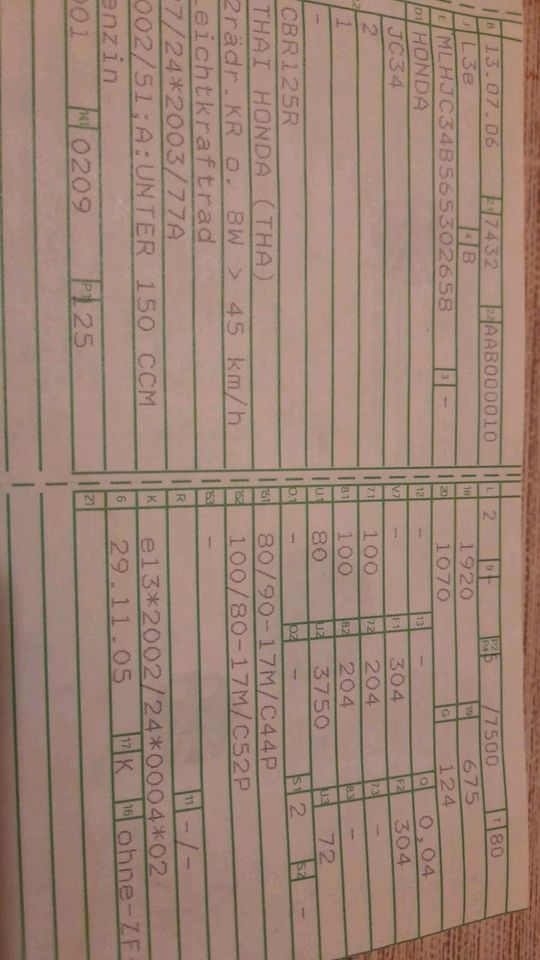 B 13.07.06 2.1 7432 2.2 AAB000010
J L3e 4 B
E MLHJC34B565302658 3 -
D1 HONDA
JC34
2
1
-
CBR125R
THAI HONDA (THA)
2rädr.KR o. BW > 45 km/h
Leichtkraftrad
97/24*2003/77A
2002/51;A:UNTER 150 CCM
enzin
001 14.1 0209 P.1 125
L 2 9 - P.2 P.4 5 /7500 T 80
18 1920 19 675
20 1070 G 124
12 - 13 - Q 0,04
V.7 - F.1 304 F.2 304
7.1 100 7.2 204 7.3 -
8.1 100 8.2 204 8.3 -
U.1 80 U.2 3750 U.3 72
O.1 - O.2 - S.1 2 S.2 -
15.1 80/90-17M/C44P
15.2 100/80-17M/C52P
15.3 -
R 11 -/-
K e13*2002/24*0004*02
6 29.11.05 17 K 16 ohne-ZF
21